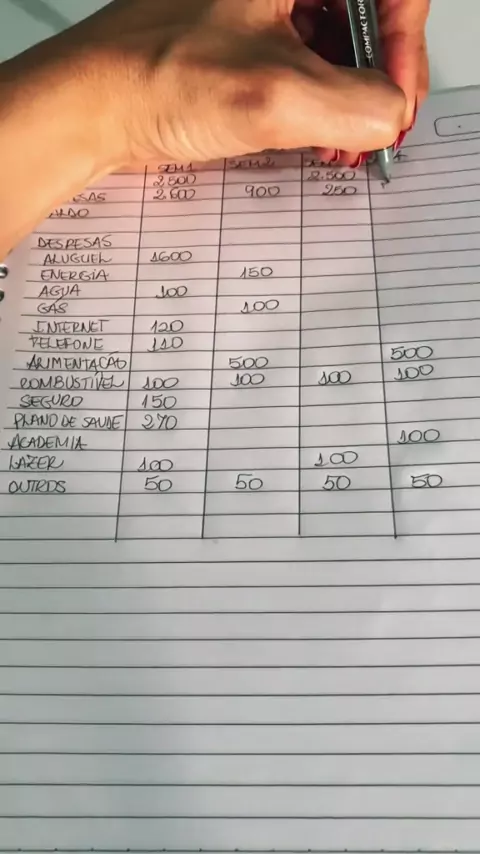 COMPACTOR
SEM 1 SEM 2
2.500 2.500
2.600 900 250
DESPESAS
ALUGUEL 1600
ENERGIA 150
AGUA 100
GÁS 100
INTERNET 120
TELEFONE 110
ALIMENTAÇÃO 500 500
COMBUSTÍVEL 100 100 100 100
SEGURO 150
PLANO DE SAUDE 270
ACADEMIA 100
LAZER 100 100
OUTROS 50 50 50 50